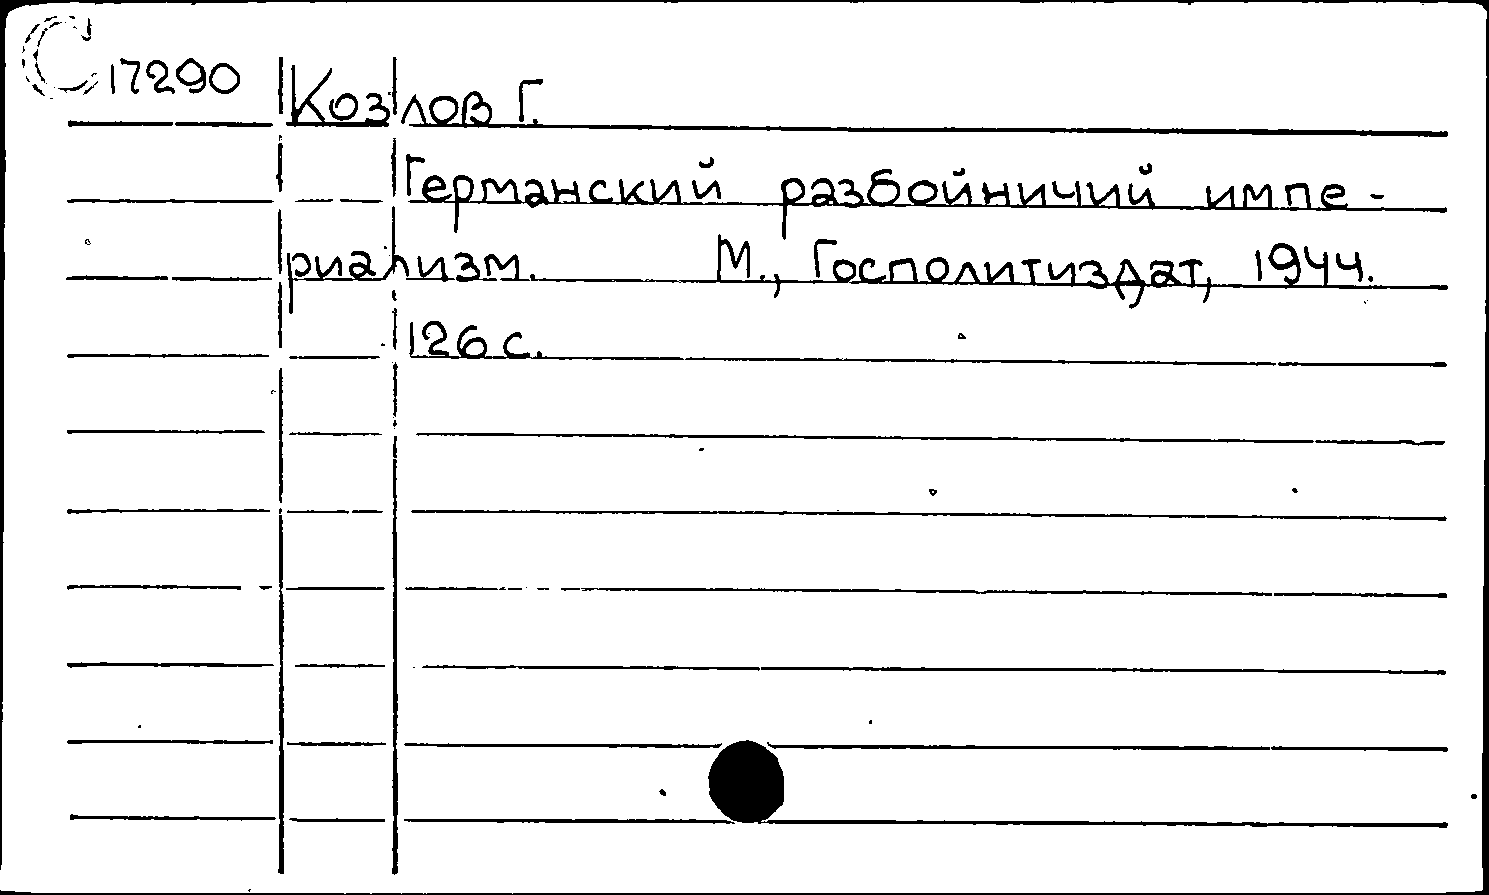 С 17290 Козлов Г.
Германский разбойничий импе-
риализм. М., Госполитиздат, 1944.
126 с.